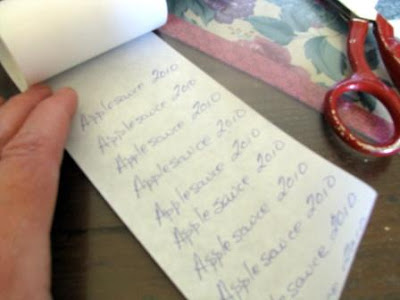 Applesauce 2010
Applesauce 2010
Applesauce 2010
Applesauce 2010
Applesauce 2010
Applesauce 2010
Applesauce 2010
Applesauce 2010